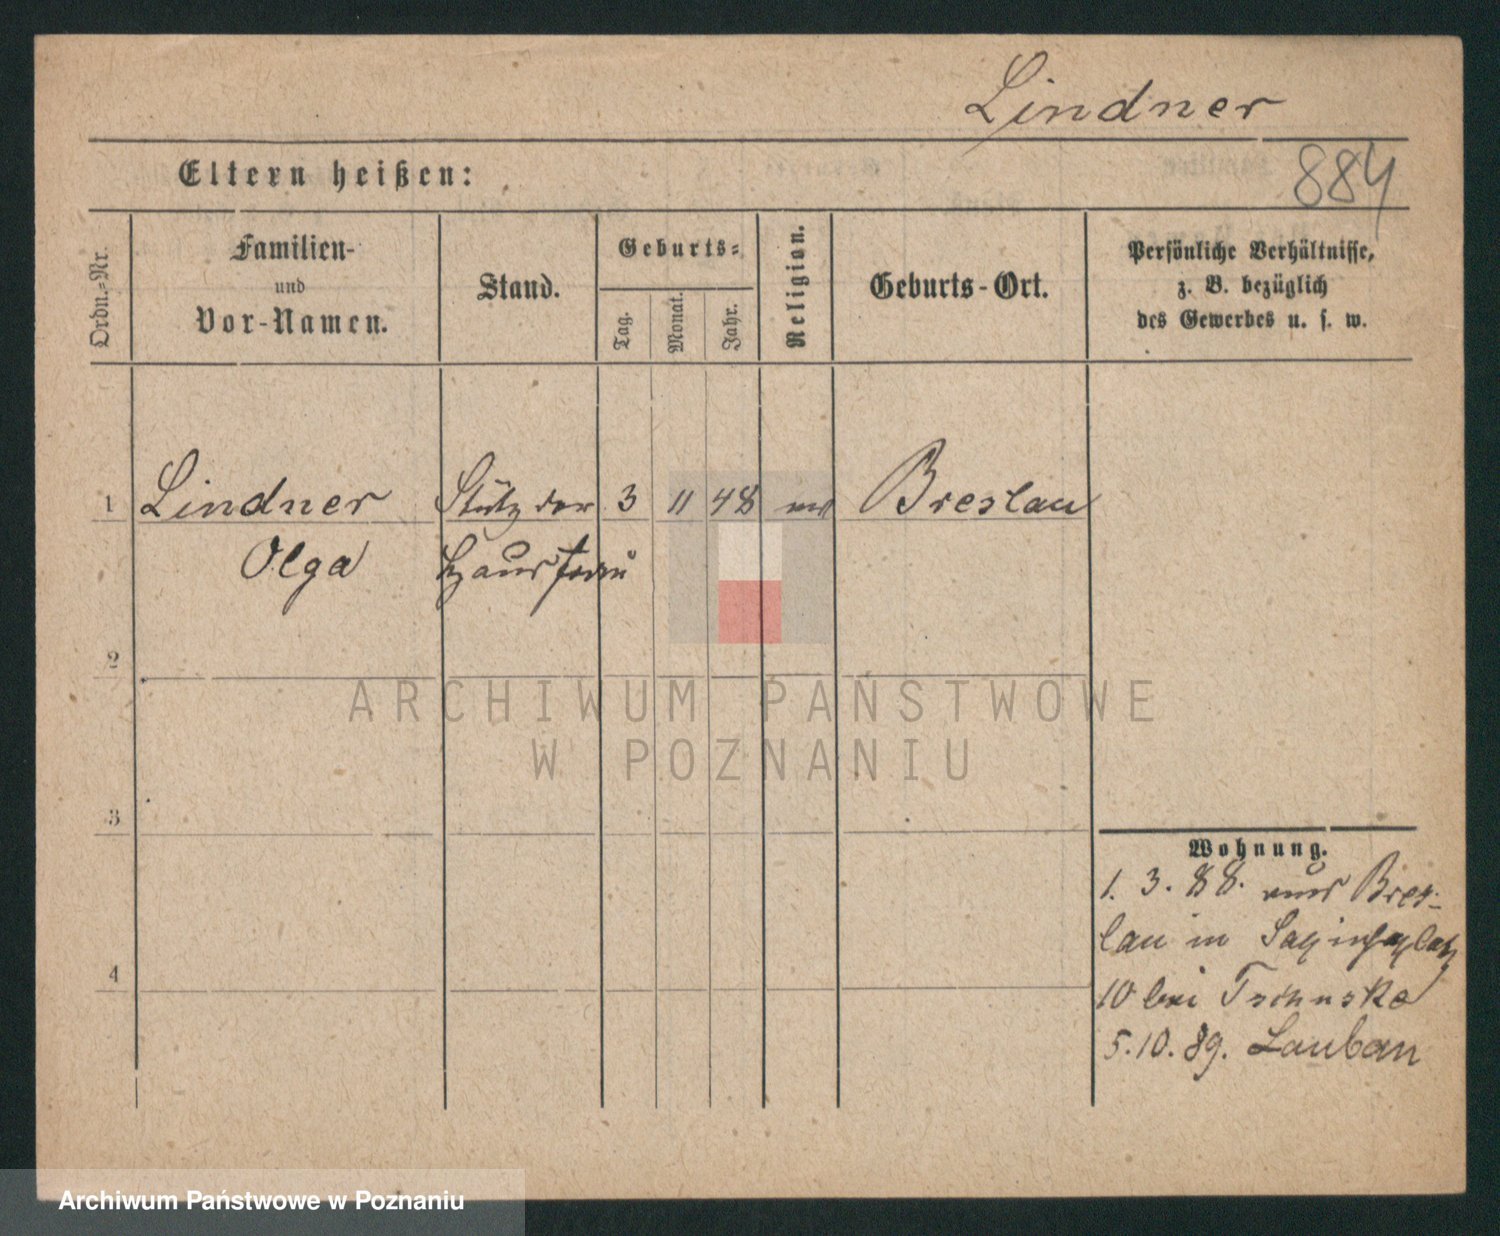 Lindner
884
Eltern heißen:
Ordn.-Nr.
Familien-
und
Vor-Namen.
Stand.
Geburts-
Tag.
Monat.
Jahr.
Religion.
Geburts-Ort.
Persönliche Verhältnisse,
z. B. bezüglich
des Gewerbes u. s. w.
1 Lindner Stütz der 3 11 48 Breslau
Olga Hausfrau
2
ARCHIWUM PAŃSTWOWE
W POZNANIU
3
Wohnung.
1. 3. 88. aus Bres-
lau in
4
10 bei
5. 10. 89. Lauban
Archiwum Państwowe w Poznaniu